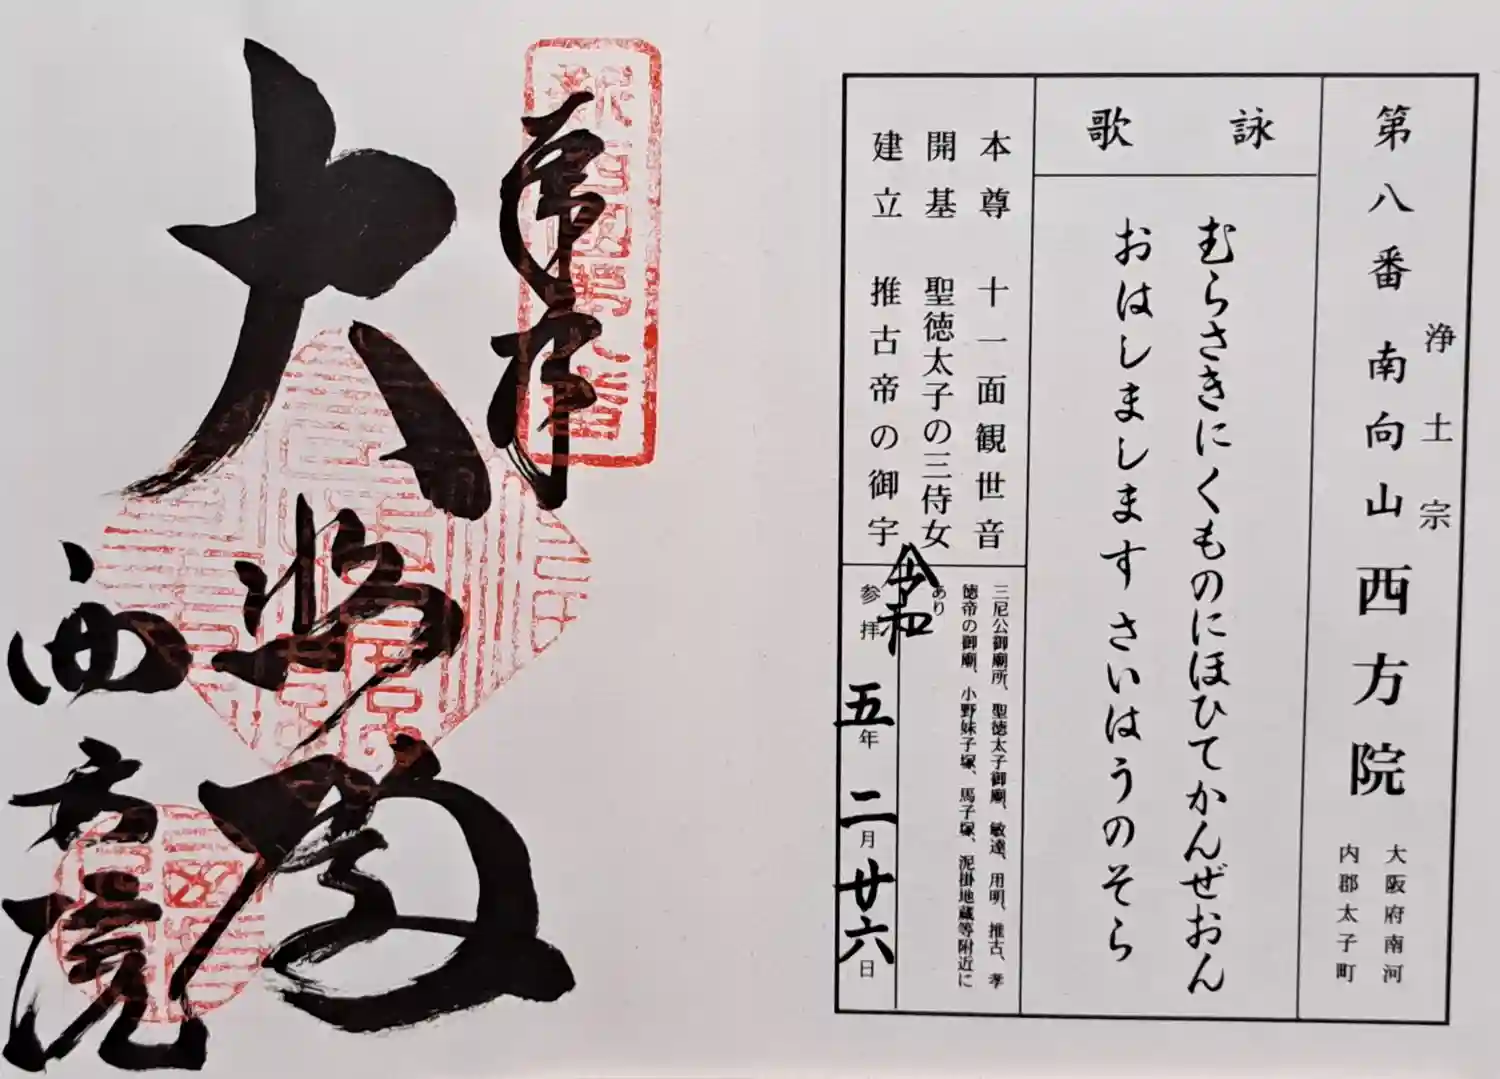 第八番 南向山 西方院
浄土宗
大阪府南河
内郡太子町
詠歌
むらさきにくものにほひてかんぜおん
おはしましますさいはうのそら
本尊 十一面観世音
開基 聖徳太子の三侍女
建立 推古帝の御宇
三尼公御廟所、聖徳太子御廟、敏達、用明、推古、孝
徳帝の御廟、小野妹子塚、馬子塚、泥掛地蔵等附近に
あり
令和
参拝 五年 二月 廿六日
奉拝
大悲閣
西方院